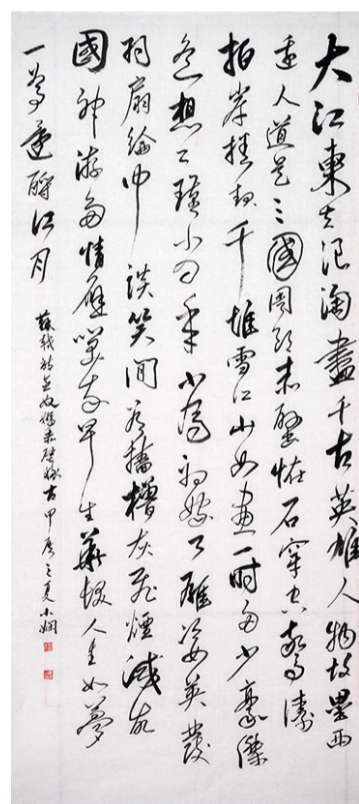 大江東去浪淘盡千古英雄人物故壘西
邊人道是三國周郎赤壁怪石穿空驚濤
拍岸捲起千堆雪江山如畫一時多少豪傑
遙想公瑾當年小喬初嫁了雄姿英發
羽扇綸巾談笑間檣櫓灰飛煙滅故
國神遊多情應笑我早生華髮人生如夢
一尊還酹江月
蘇軾詞念奴嬌赤壁懷古甲辰之夏小嫻